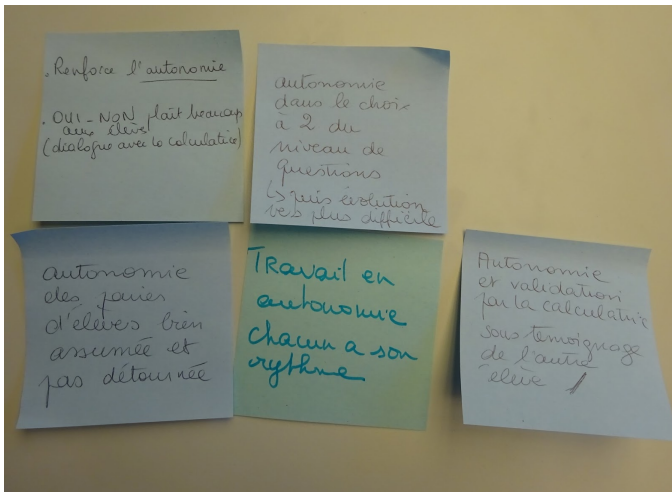 . Renforce l'autonomie
. OUI-NON plaît beaucoup
aux élèves
(dialogue avec la calculatrice)
autonomie
dans le choix
à 2 du
niveau de
questions
↳ puis évolution
vers plus difficile
autonomie
des paires
d'élèves bien
assumée et
pas détournée
Travail en
autonomie
chacun a son
rythme
Autonomie
et validation
par la calculatrice
sous témoignage
de l'autre
élève